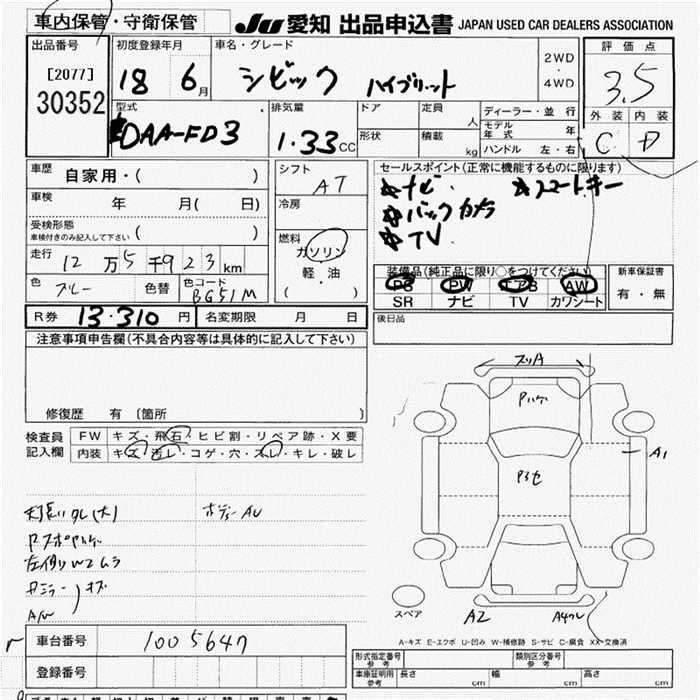 車内保管・守衛保管
JU 愛知 出品申込書 JAPAN USED CAR DEALERS ASSOCIATION
出品番号
[2077]
30352
初度登録年月
18 6月
車名・グレード
シビック ハイブリット
2WD
・
4WD
評価点
3.5
外装 内装
C D
型式
DAA-FD3
排気量
1.33CC
ドア
形状
定員 人
積載 kg
ディーラー・並行
モデル年式 年
ハンドル 左・右
車歴 自家用・( )
車検 年 月( 日)
受検形態
車検付きのみ記入して下さい ( )
走行 12万5千923km
色 ブルー 色替 色コード BG51M
シフト
AT
冷房
燃料
ガソリン
軽・油
( )
セールスポイント(正常に機能するものに限ります)
ナビ. スマートキー
バックカメラ
TV.
装備品(純正品に限り○をつけてください)
PS PW エアB AW
SR ナビ TV カワシート
新車保証書
有・無
R券 13.310 円 名変期限 月 日
後日品
注意事項申告欄(不具合内容等は具体的に記入して下さい)
修復歴 有 〔箇所 〕
検査員
記入欄
FW キズ・飛石・ヒビ割・リペア跡・X要
内装 キズ・汚レ・コゲ・穴・スレ・キレ・破レ
ボデーAU
左側WAムラ
A/W
スリA
Pハゲ
A1
スペア
A2
A-キズ E-エクボ U-凹み W-補修跡 S-サビ C-腐食 XX-交換済
車台番号 1005647
登録番号
形式指定番号
参考
類別区分番号
参考
車庫証明用
参考
長さ cm 幅 cm 高さ cm